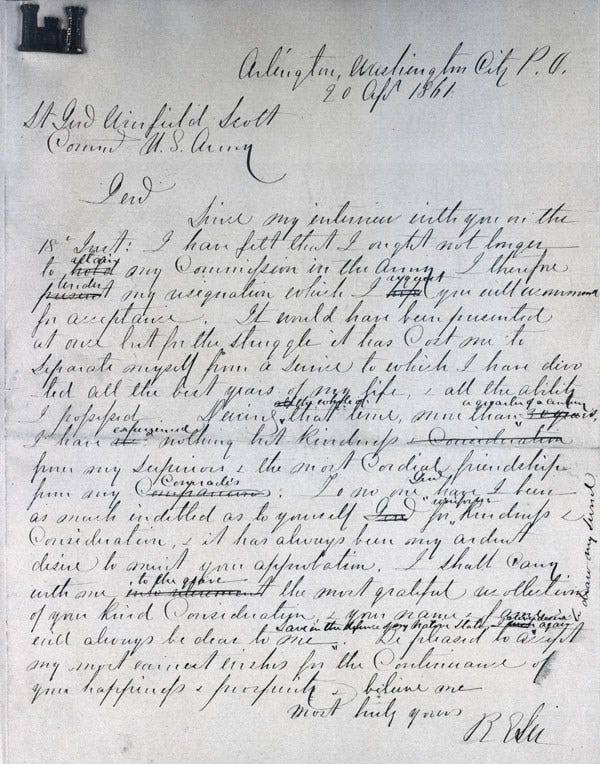 Arlington, Washington City P. O.
20 Apl 1861
Lt Genl Winfield Scott
Commd U. S. Army
Genl
Since my interview with you on the
18th Inst: I have felt that I ought not longer
retain
to hold my Commission in the Army. I therefore
tender
present my resignation which I request you will recommend
for acceptance. It would have been presented
at once but for the struggle it has Cost me to
separate myself from a service to which I have devo
ted all the best years of my life, & all the ability
I possessed. During the whole of that time, more than a quarter of a century
30 years,
experienced
I have nothing but kindness & Consideration
from my Superiors & the most Cordial friendship
Comrades
from my Companions: To no one Genl have I been
as much indebted as to yourself Genl for uniform kindness &
Consideration, & it has always been my ardent
desire to merit your approbation. I shall carry
to the grave
with me into retirement the most grateful recollection
of your kind Consideration, & your name & fame
will always be dear to me Save in the defence of my Native State
I never desire again to draw my sword
Be pleased to accept
my most earnest wishes for the Continuance of
your happiness & prosperity & believe me
most truly yours
R E Lee